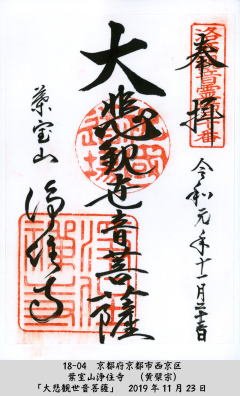 奉拝
令和元年十一月二十三日
大悲観世音菩薩
葉室山
浄住寺
18-04 京都府京都市西京区
葉室山浄住寺 (黄檗宗)
「大悲観世音菩薩」 2019年11月23日